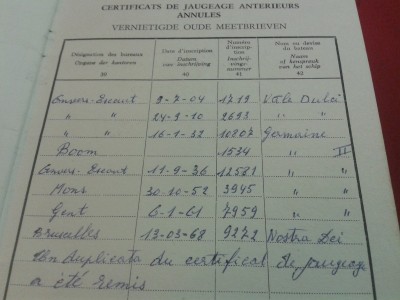 CERTIFICATS DE JAUGEAGE ANTERIEURS
ANNULES
VERNIETIGDE OUDE MEETBRIEVEN
Désignation des bureaux Date d'inscription Numéro d'inscription Nom ou devise du bateau
Organe der kantoren Datum van inschrijving Inschrijvingsnummer Naam of kenspreuk van het schip
39 40 41 42
Anvers-Escaut 9-7-04 1719
" " 24-9-10 2693 "
" " 16-1-32 10807 Germaine
Boom 1534 " II
Anvers-Escaut 11-9-36 12581 " "
Mons 30-10-52 3945 " "
Gent 6-1-61 7959 " "
Bruxelles 13-03-68 9272 Nostra Dei
Un duplicata du certificat de jaugeage
a été remis